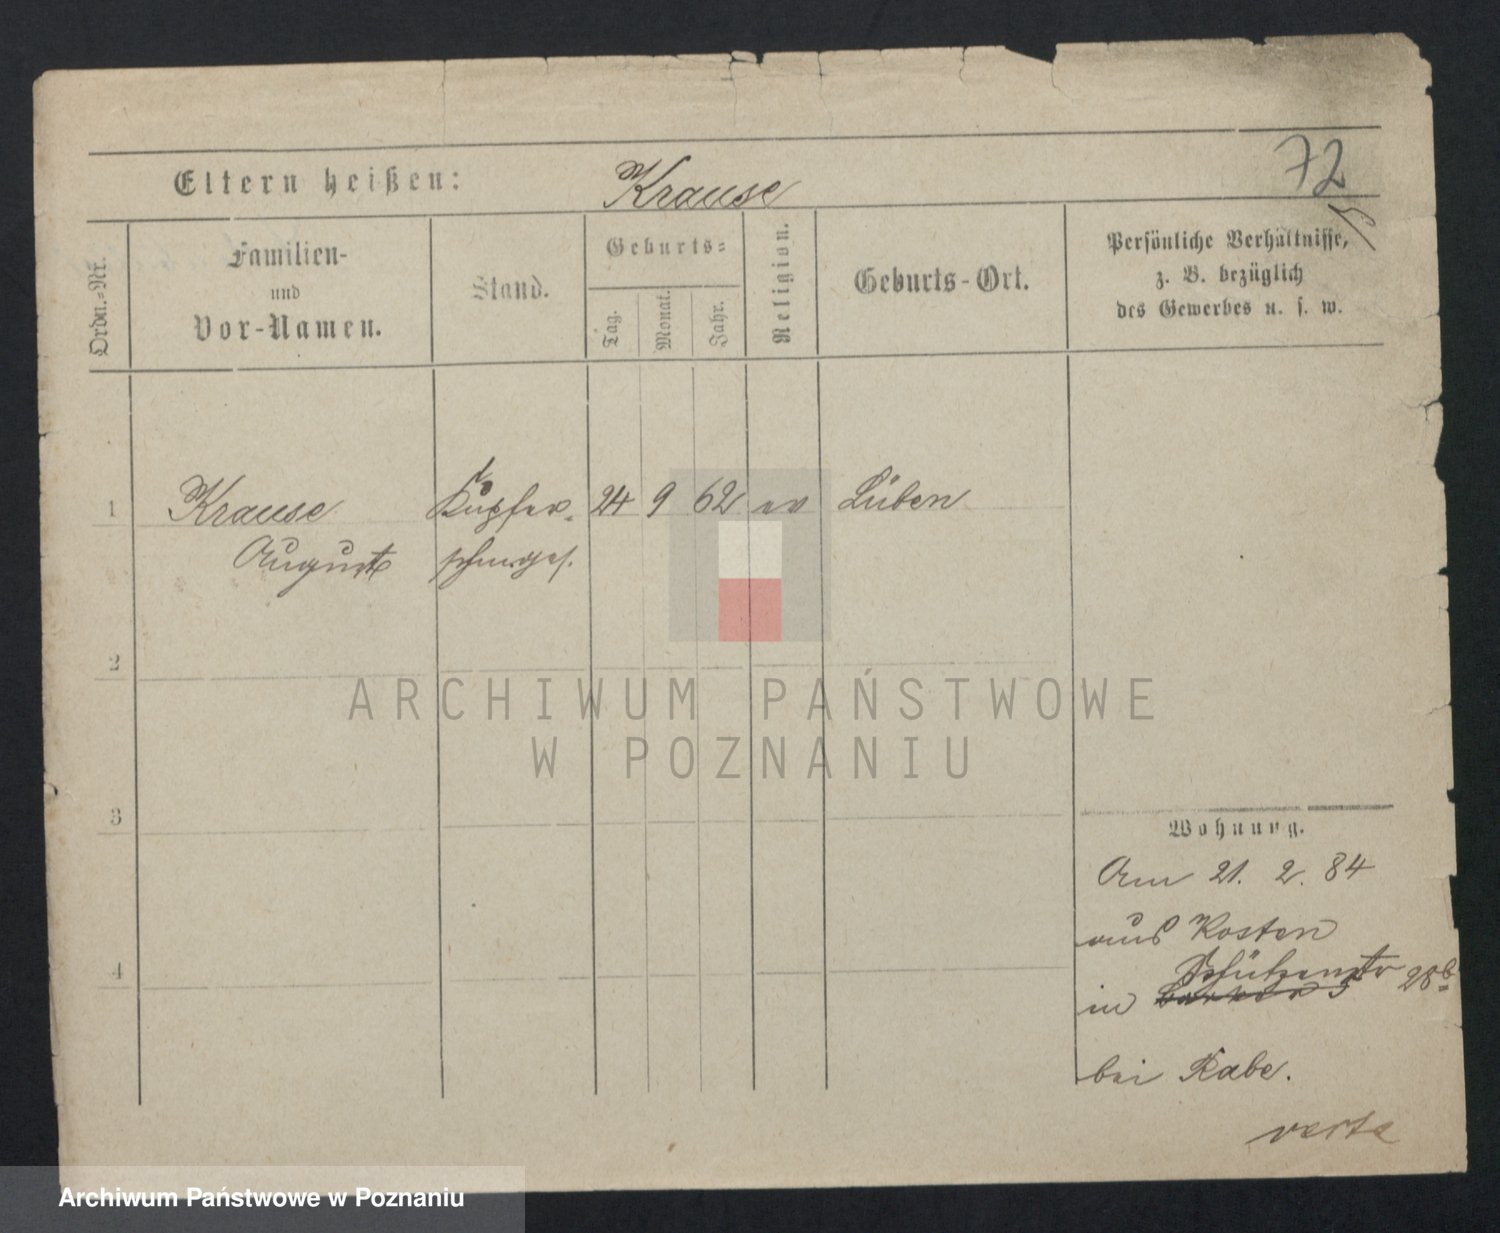 72
Eltern heißen: Krause
Ordn.-Nr.
Familien-
und
Vor-Namen.
Stand.
Geburts-
Tag.
Monat.
Jahr.
Religion.
Geburts-Ort.
Persönliche Verhältnisse,
z. B. bezüglich
des Gewerbes u. s. w.
1 Krause Kupfer- 24 9 62 ev Lüben
August schmges.
2
3
4
Wohnung.
Am 21. 2. 84
aus Kosten
Schützenstr 28b
in
bei Rabe.
verte
ARCHIWUM PAŃSTWOWE
W POZNANIU
Archiwum Państwowe w Poznaniu